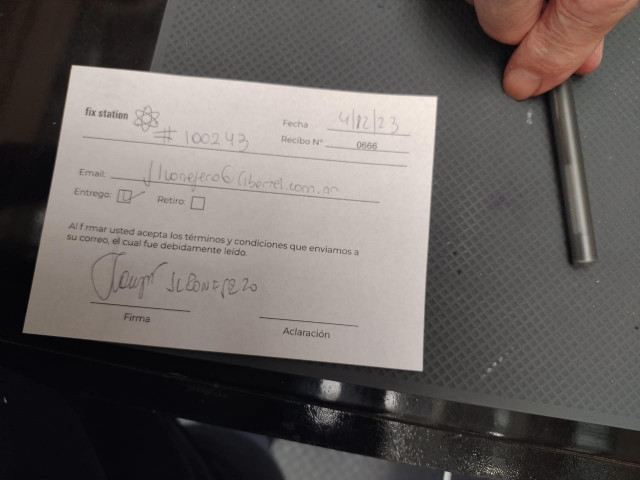 fix station
# 100243
Fecha 4/12/23
Recibo Nº 0666
Email:
Entrego: Retiro:
Al f rmar usted acepta los términos y condiciones que enviamos a
su correo, el cual fue debidamente leído.
Firma
Aclaración